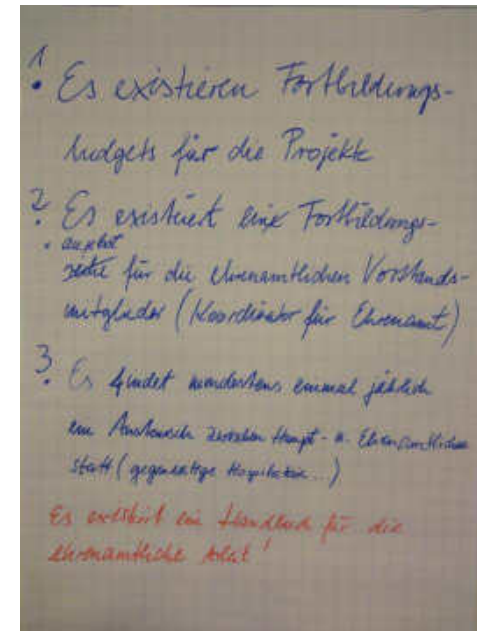 1. Es existieren Fortbildungs-
budgets für die Projekte
2. Es existiert eine Fortbildungs-
angebot
seite für die ehrenamtlichen Vorstands-
mitglieder (Koordinator für Ehrenamt)
3. Es findet mindestens einmal jährlich
ein Austausch zwischen Haupt- u. Ehrenamtlichen
statt (gegenseitige Hospitation...)
Es existiert ein Handbuch für die
ehrenamtliche Arbeit!